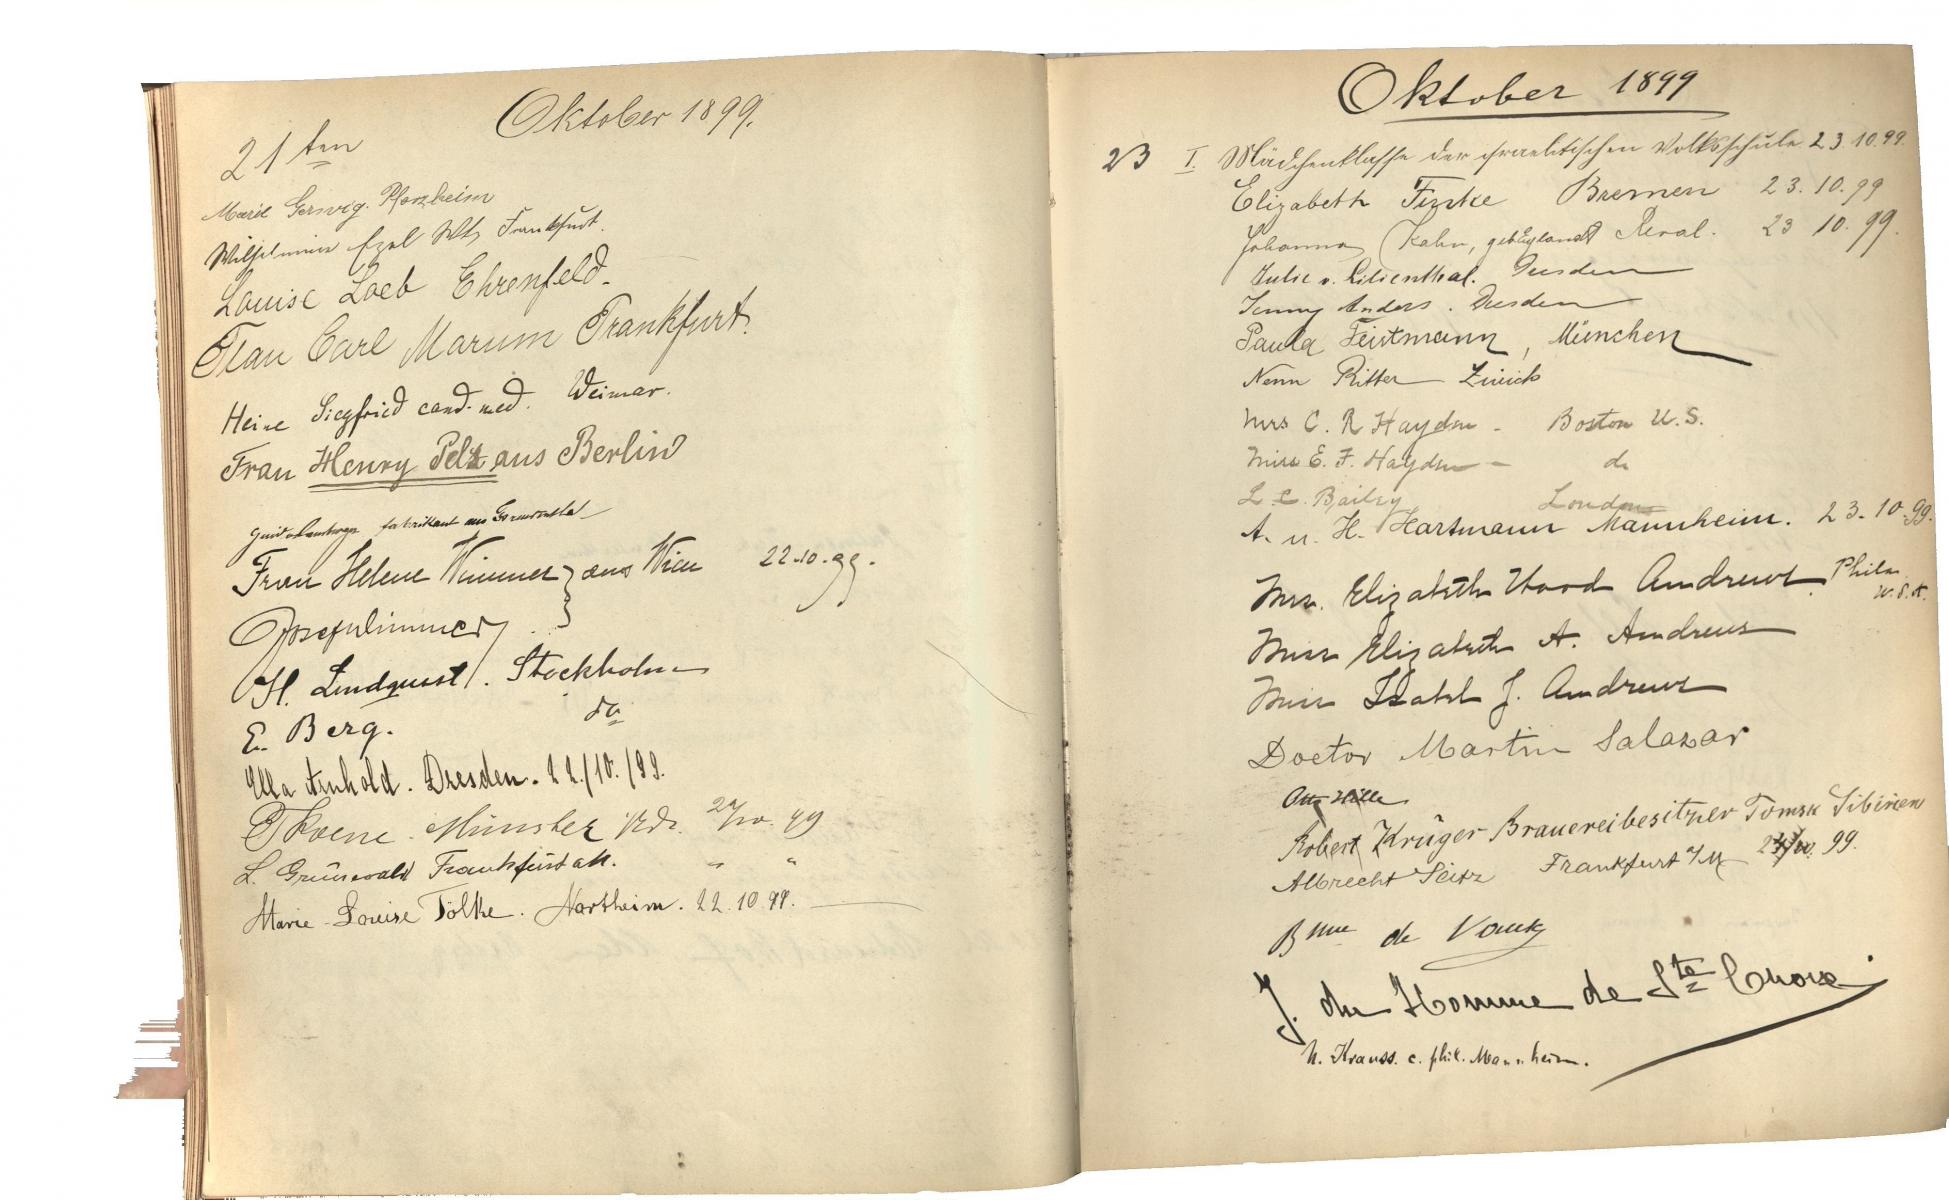 Oktober 1899.
21ten
Marie Gerwig. Pforzheim
Wilhelmine Wtw Frankfurt.
Louise Loeb Ehrenfeld.
Frau Carl Marum Frankfurt.
Heine Siegfried cand. med. Weimar.
Frau Henry Pels aus Berlin
Fabrikant aus
Frau Helene Wimmer } aus Wien 22.10.99.
Josef Wimmer
H. Lindquist. Stockholm
E. Berg. do
Ella Arnhold. Dresden. 22./10./99.
Münster 99
L. Grünewald Frankfurt a/M. " "
Marie-Louise Tölke. Northeim. 22.10.99.
Oktober 1899
23 I. Mädchenklasse der israelitischen Volksschule 23.10.99.
Elizabeth Finke Bremen 23.10.99
Johanna Kahn, geb. Reval. 23 10.99.
Julie v. Lilienthal. Dresden
Jenny Anders. Dresden
Paula Feistmann, München
Ritter Zürich
Mrs C. R Hayden - Boston U.S.
Miss E. F. Hayden - do
L. C. Bailey London
A. u. H. Hartmann Mannheim. 23.10.99.
Mrs. Elizabeth Wood Andrews Phila U.S.A.
Miss Elizabeth A. Andrews
Miss Isabel J. Andrews
Doctor Martin Salazar
Otto Hille
Robert Krüger Brauereibesitzer Tomsk Sibirien
Albrecht Seitz Frankfurt a/M 99.
Bnne de
J. du Homme de Ste Croix
N. Krauss. c. phil. Mannheim.